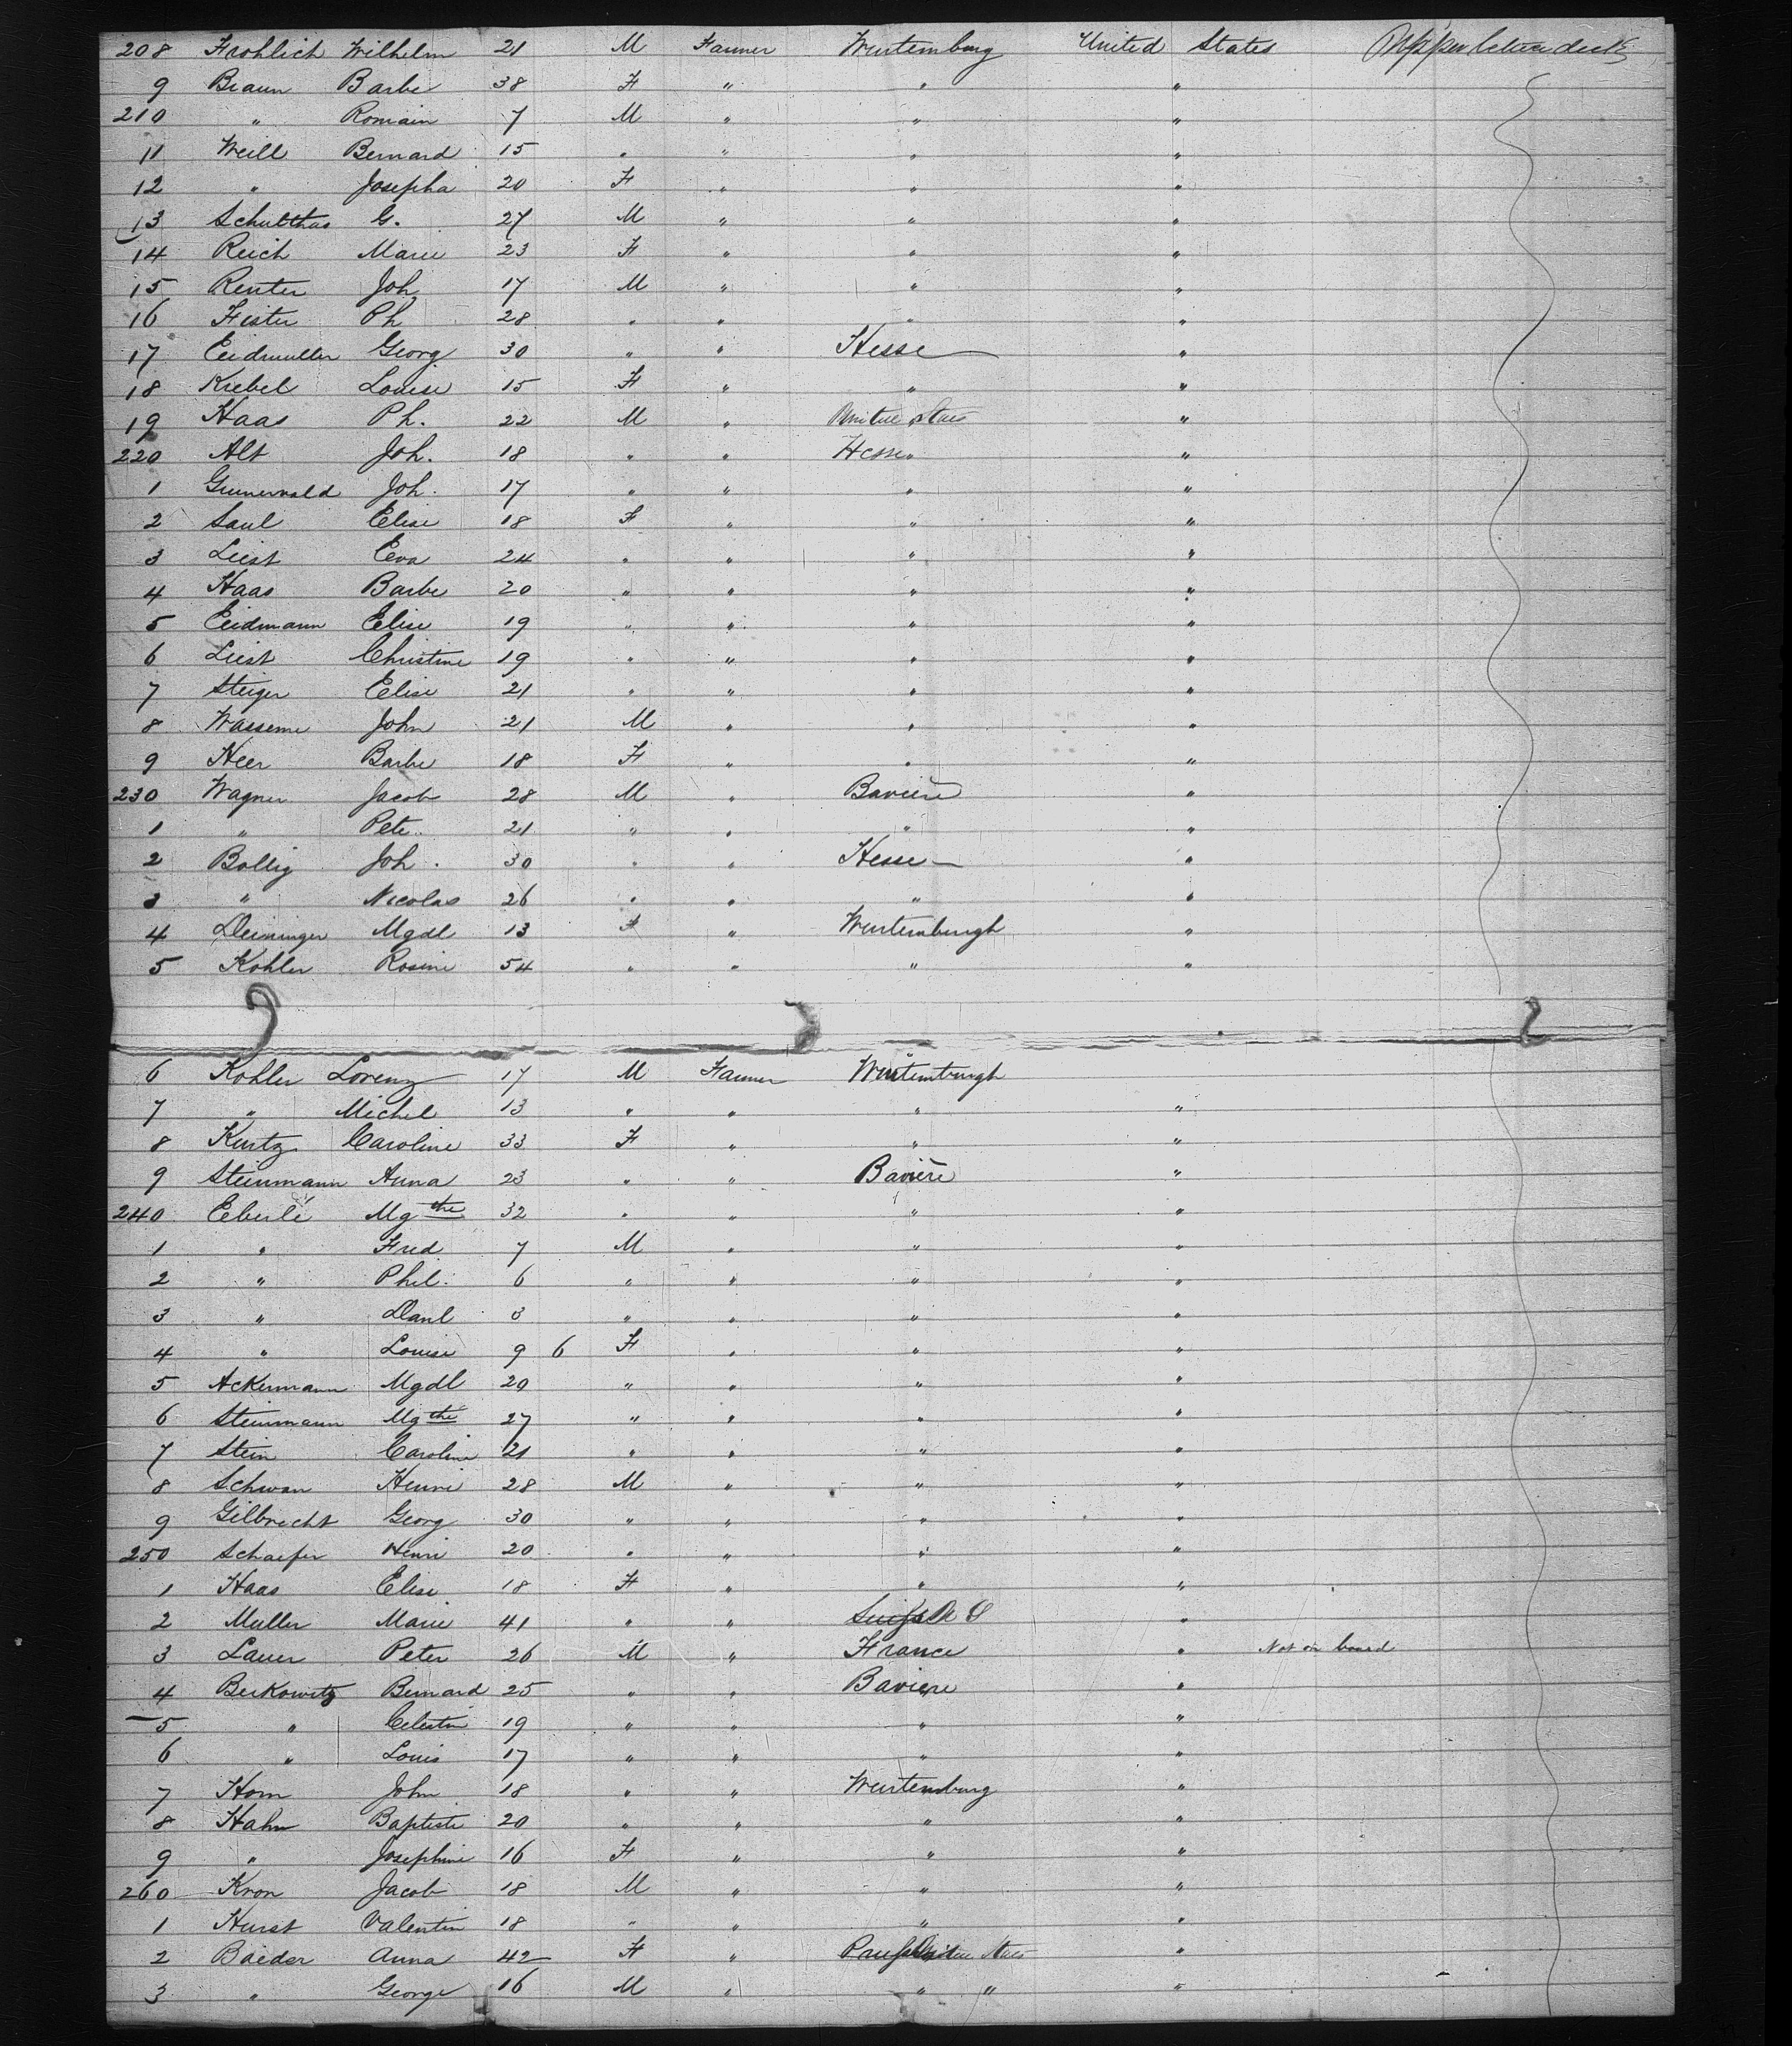 208 Frohlich Wilhelm 21 M Farmer Wurtemburg United States Upper between decks
9 Braun Barbe 38 F " " "
210 " Romain 7 M " " "
11 Weill Bernard 15 " " " "
12 " Josepha 20 F " " "
13 Schulthas G. 27 M " " "
14 Reich Marie 23 F " " "
15 Renter Joh 17 M " " "
16 Fister Ph 28 " " " "
17 Eidmuller Georg 30 " " Hesse "
18 Kiebel Louise 15 F " " "
19 Haas Ph. 22 M " "
220 Alt Joh. 18 " " Hesse "
1 Grunewald Joh. 17 " " " "
2 Saul Elise 18 F " " "
3 Liest Eva 24 " " " "
4 Haas Barbe 20 " " " "
5 Eidmann Elise 19 " " " "
6 Liest Christine 19 " " " "
7 Steiger Elise 21 " " " "
8 Wasseme John 21 M " " "
9 Heer Barbe 18 F " " "
230 Wagner Jacob 28 M " Baviere "
1 " Pete 21 " " " "
2 Bollig Joh. 30 " " Hesse "
3 " Nicolas 26 " " " "
4 Deininger Mgdl 13 F " Wurtemburgh "
5 Kohler Rosine 54 " " " "
6 Kohler Lorenz 17 M Farmer Wurtemburgh
7 " Michel 13 " " " "
8 Kurtz Caroline 33 F " " "
9 Steinmann Anna 23 " " Baviere "
240 Eberlé Mgthe 32 " " " "
1 " Fred 7 M " " "
2 " Phil. 6 " " " "
3 " Danl 3 " " " "
4 " Louise 9 6 F " " "
5 Ackermann Mgdl 20 " " " "
6 Steinmann Mgthe 27 " " " "
7 Stein Caroline 21 " " " "
8 Schwan Henri 28 M " " "
9 Gilbrecht Georg 30 " " " "
250 Schaefer Henri 20 " " " "
1 Haas Elise 18 F " " "
2 Muller Marie 41 " " "
3 Lauer Peter 26 M " France " Not on board
4 Berkowitz Bernard 25 " " Baviere "
5 " Celestin 19 " " " "
6 " Louis 17 " " " "
7 Horn John 18 " " Wurtemburg "
8 Hahn Baptiste 20 " " " "
9 " Josephine 16 F " " "
260 Kron Jacob 18 M " " "
1 Hurst Valentin 18 " " " "
2 Baeder Anna 42 F " "
3 " George 16 M " " " "